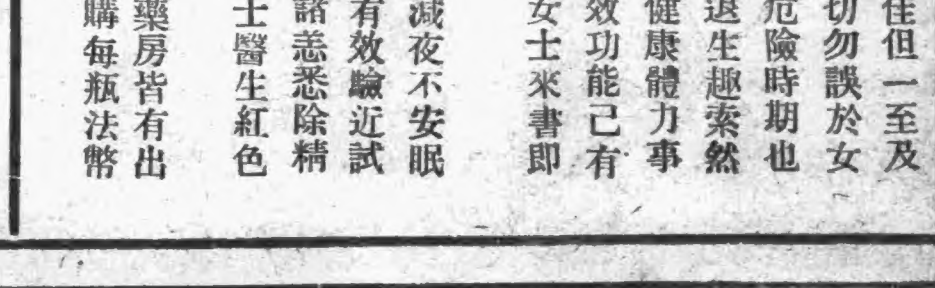 佳但一至及
切勿誤於女
危險時期也
退生趣索然
健康體力事
效功能已有
女士來書即
減夜不安眠
有效驗近試
諸恙悉除精
士醫生紅色
藥房皆有出
購每瓶法幣